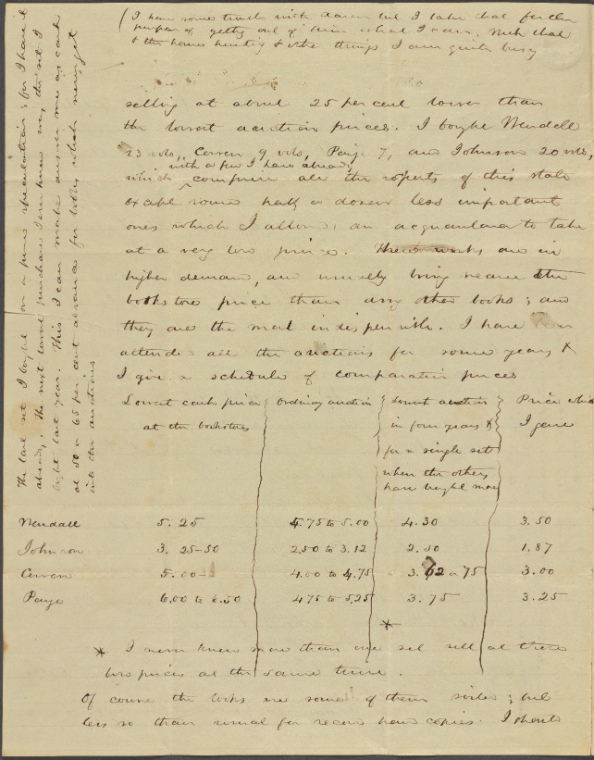 (I have some trade with                and I take that for the
purpose of getting out of him what I can. With that
& the house hunting & other things I am quite busy
selling at about 25 per cent lower than
the lowest auction prices. I bought Wendell
23 vols, Cowen 9 vols, Paige 7, and Johnson 20 vols,
with a few I have already
which comprise all the reports of this state
except some half a dozen less important
ones which I allowed an acquaintance to take
at a very low price. These works are in
higher demand, and usually bring nearer the
bookstore price than any other books; and
they are the most indispensible. I have
attended all the auctions for some years &
I give a schedule of comparative prices
Lowest cash price
at the bookstores
Ordinary auction
Lowest auction
in four years *
for a single set
when the others
have bought more
Price which
I gave
Wendall 5.25 4.75 to 5.00 4.30 3.50
Johnson 3.25-50 2.50 to 3.12 2.50 1.87
Cowen 5.00 4.00 to 4.75 3.62 a 75 3.00
Paige 6.00 to 6.50 4.75 to 5.25 3.75 3.25
*
* I never knew more than one set sell at these
low prices at the same time.
Of course the books are some of them soiled; but
less so than usual for second hand copies. I should
The last set I bought on a pure speculation; for I have it
already. The next lowest purchase I ever knew was, the set I
bought last year. This I can make answer me as cash
at 50 a 65 per cent advance for books which never get
into the auctions